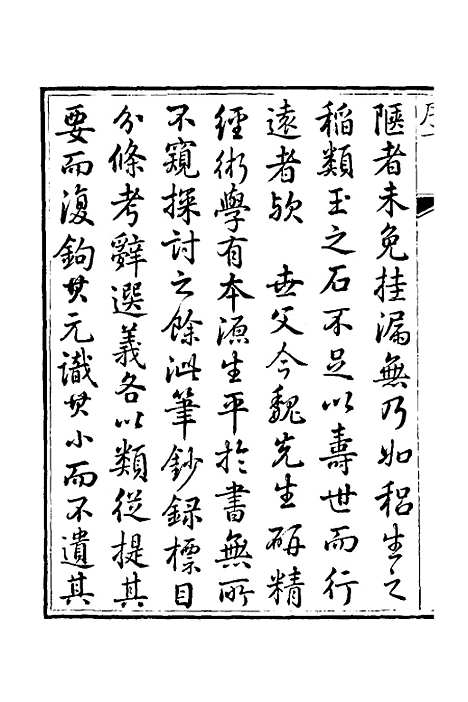 序一
陋者未免挂漏無乃如稆生之
稻類玉之石不足以壽世而行
遠者欤　世父今魏先生研精
經術學有本源生平於書無所
不窺探討之餘泚筆鈔録標目
分條考辭選義各以類從提其
要而復鉤其元識其小而不遺其